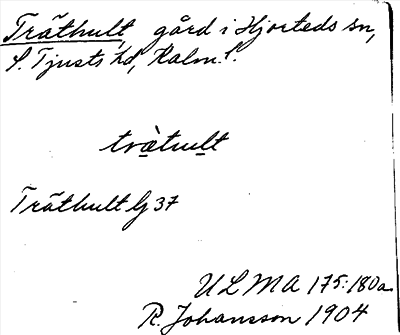 Träthult gård i Hjorteds sn,
S. Tjusts hd, Kalm. l.
tràthult
Träthult G 37
ULMA 175:180a
R. Johansson 1904